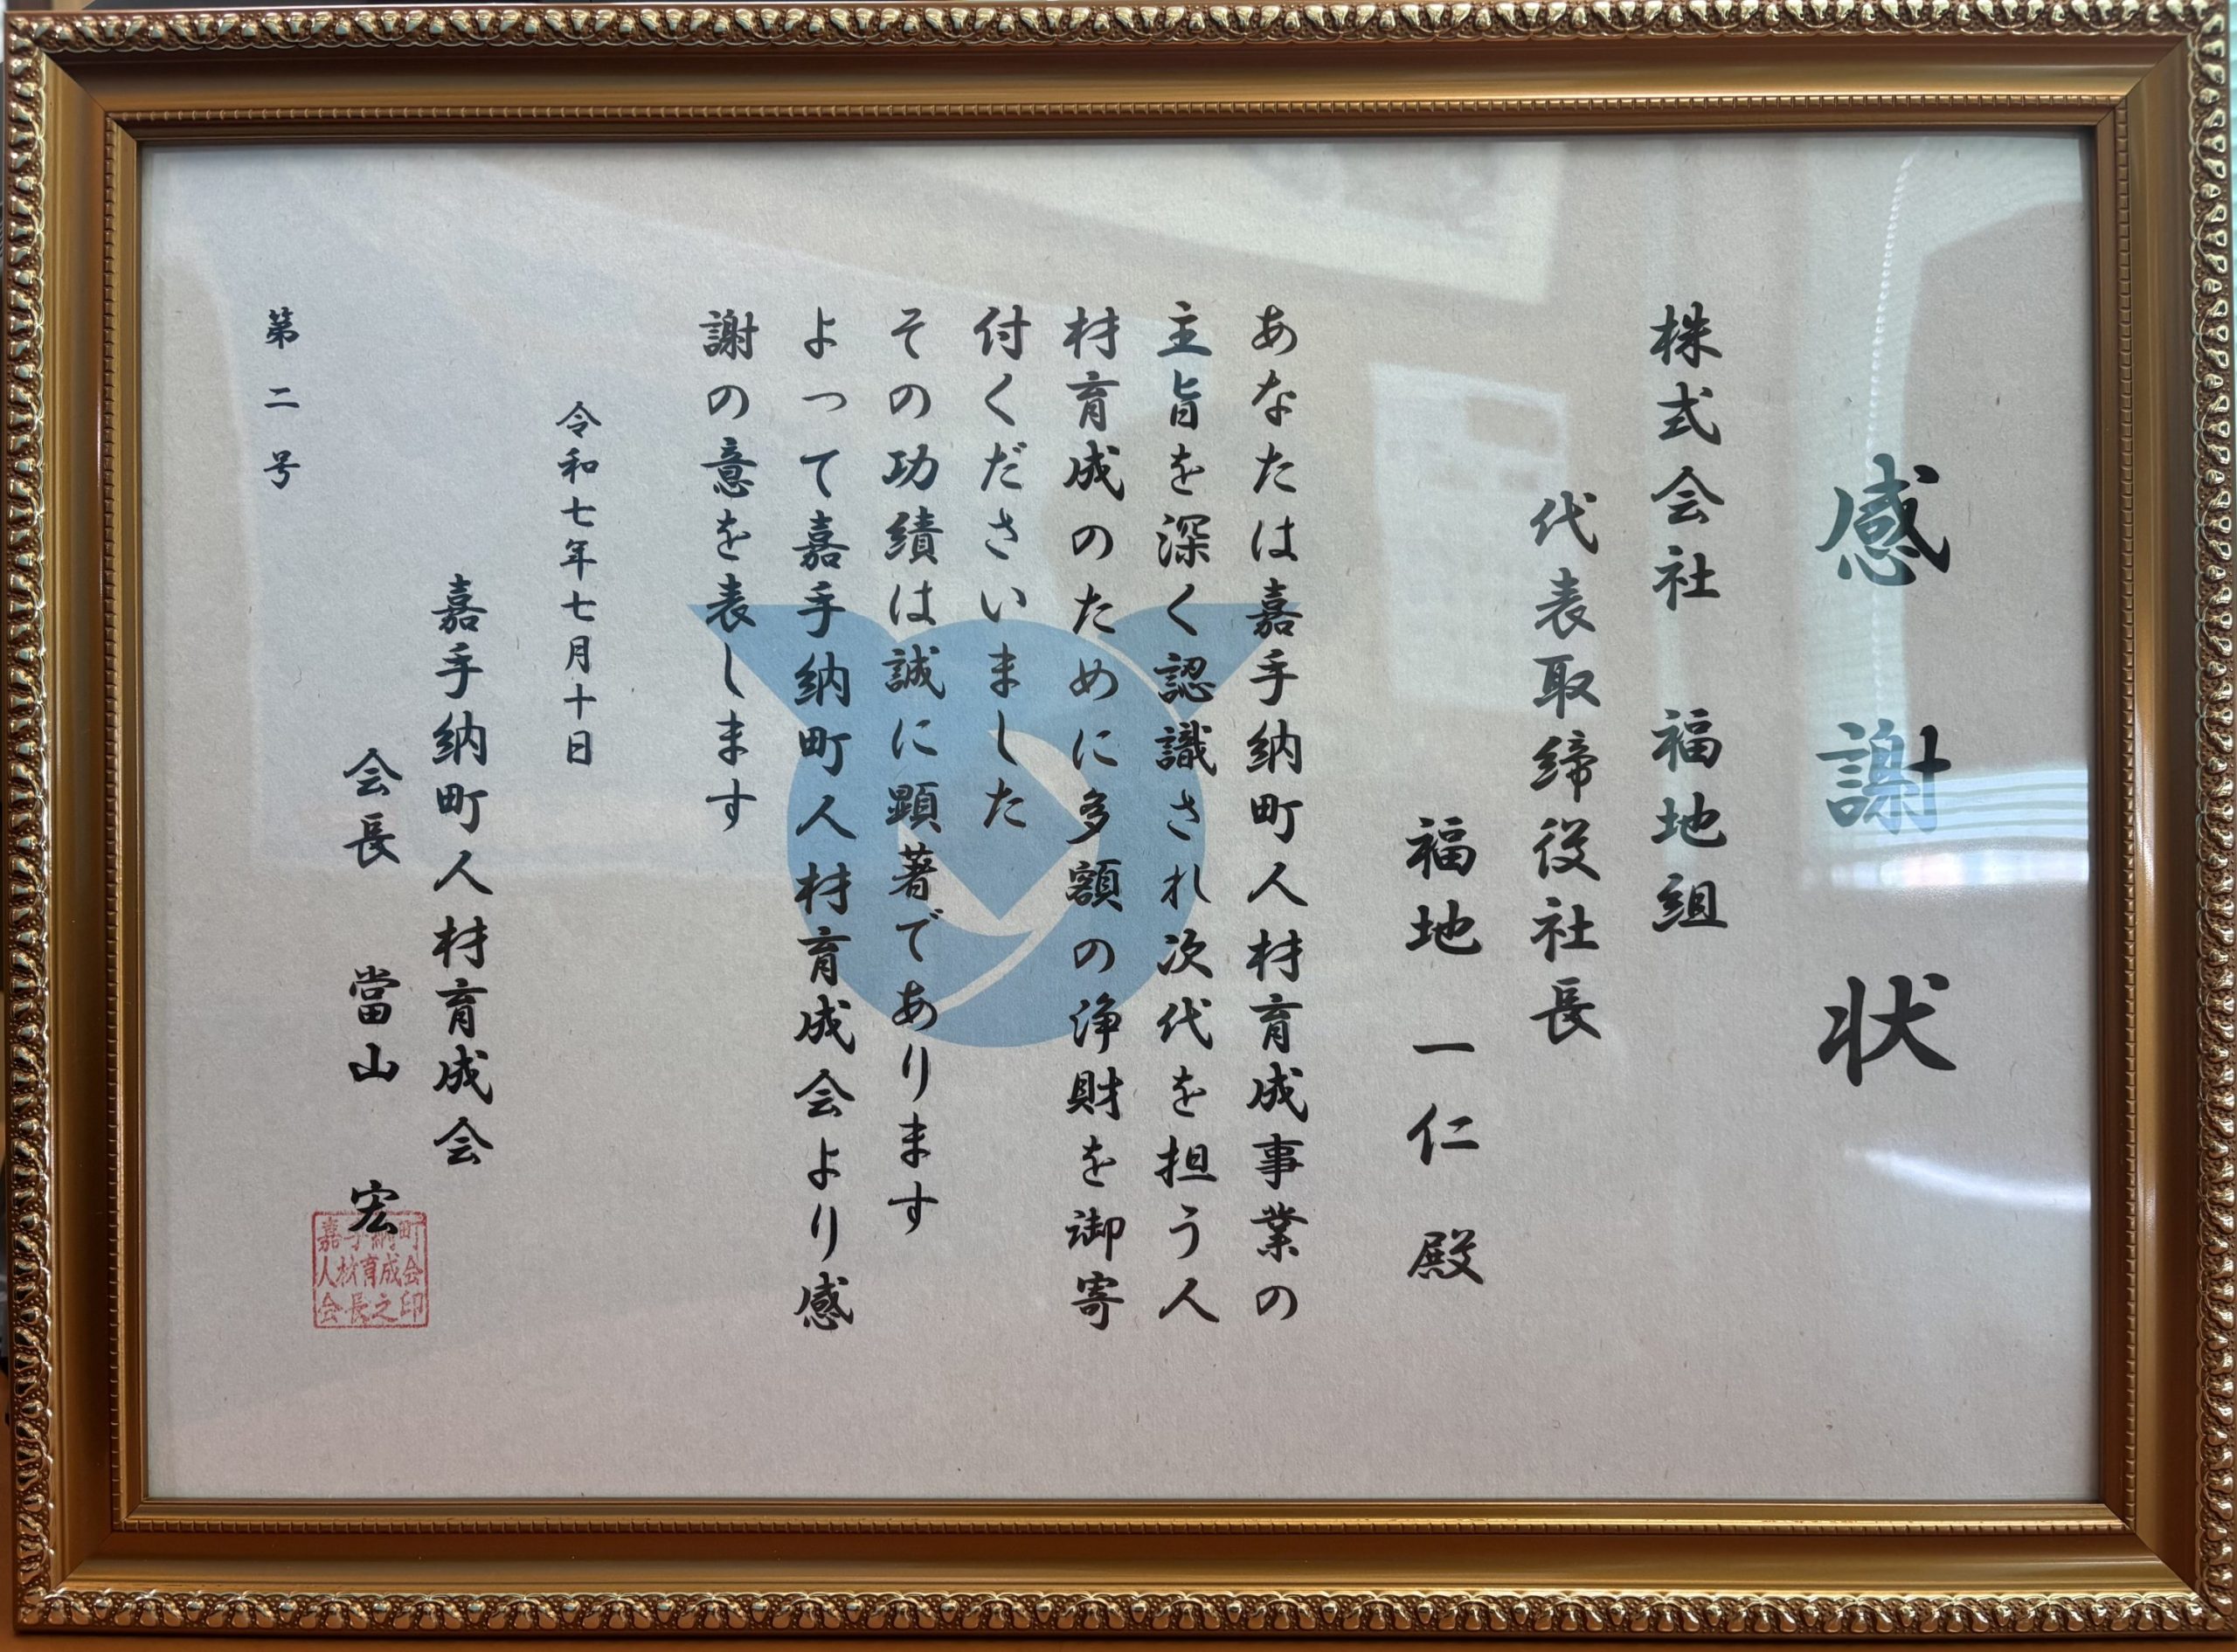 感謝状
株式会社 福地組
代表取締役社長
福地一仁 殿
あなたは嘉手納町人材育成事業の
主旨を深く認識され次代を担う人
材育成のために多額の浄財を御寄
付くださいました
その功績は誠に顕著であります
よって嘉手納町人材育成会より感
謝の意を表します
令和七年七月十日
嘉手納町人材育成会
会長 當山 宏
嘉手納町
人材育成会
会長之印
第二号